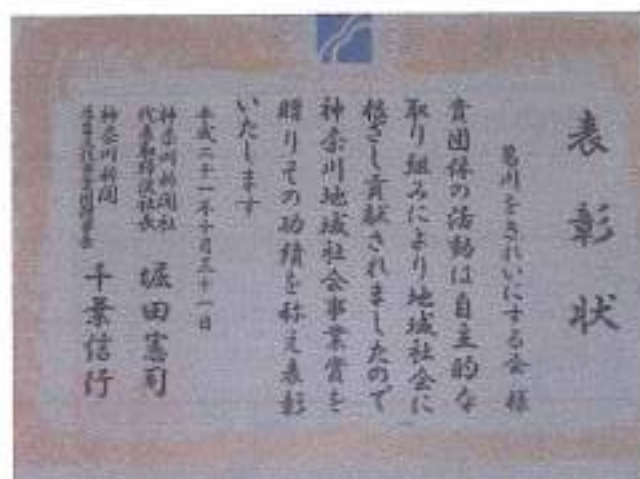 表彰状
葛川をきれいにする会 様
貴団体の活動は自主的な
取り組みにより地域社会に
根ざし貢献されましたので
神奈川地域社会事業賞を
贈りその功績を称え表彰
いたします
平成二十一年十月三十一日
神奈川新聞社
代表取締役社長 堀田憲司
神奈川新聞
厚生文化事業団理事長 千葉信行